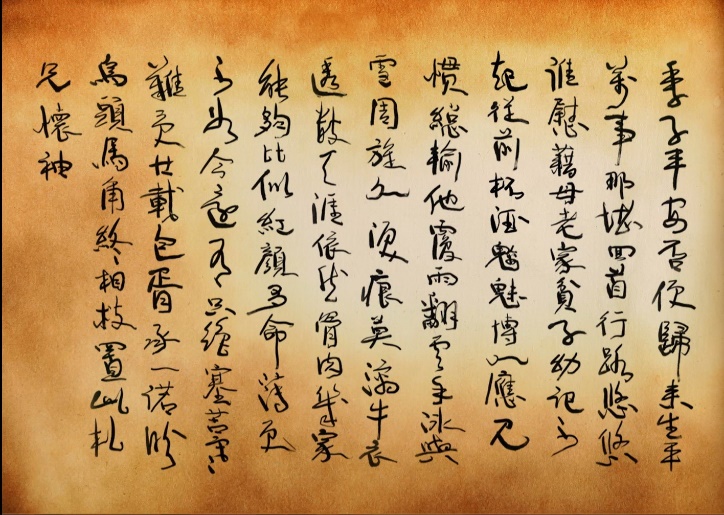 季子平安否便歸来生平
萬事那堪回首行路悠悠
誰慰藉母老家貧子幼記不
起從前杯酒魑魅搏人應見
慣總輸他覆雨翻雲手冰與
雪周旋久淚痕莫滴牛衣
透數天涯依然骨肉幾家
能夠比似紅顏多命薄更
不如今還有只絕塞苦寒
難受廿載包胥承一諾盼
烏頭馬角終相救置此札
兄懷袖